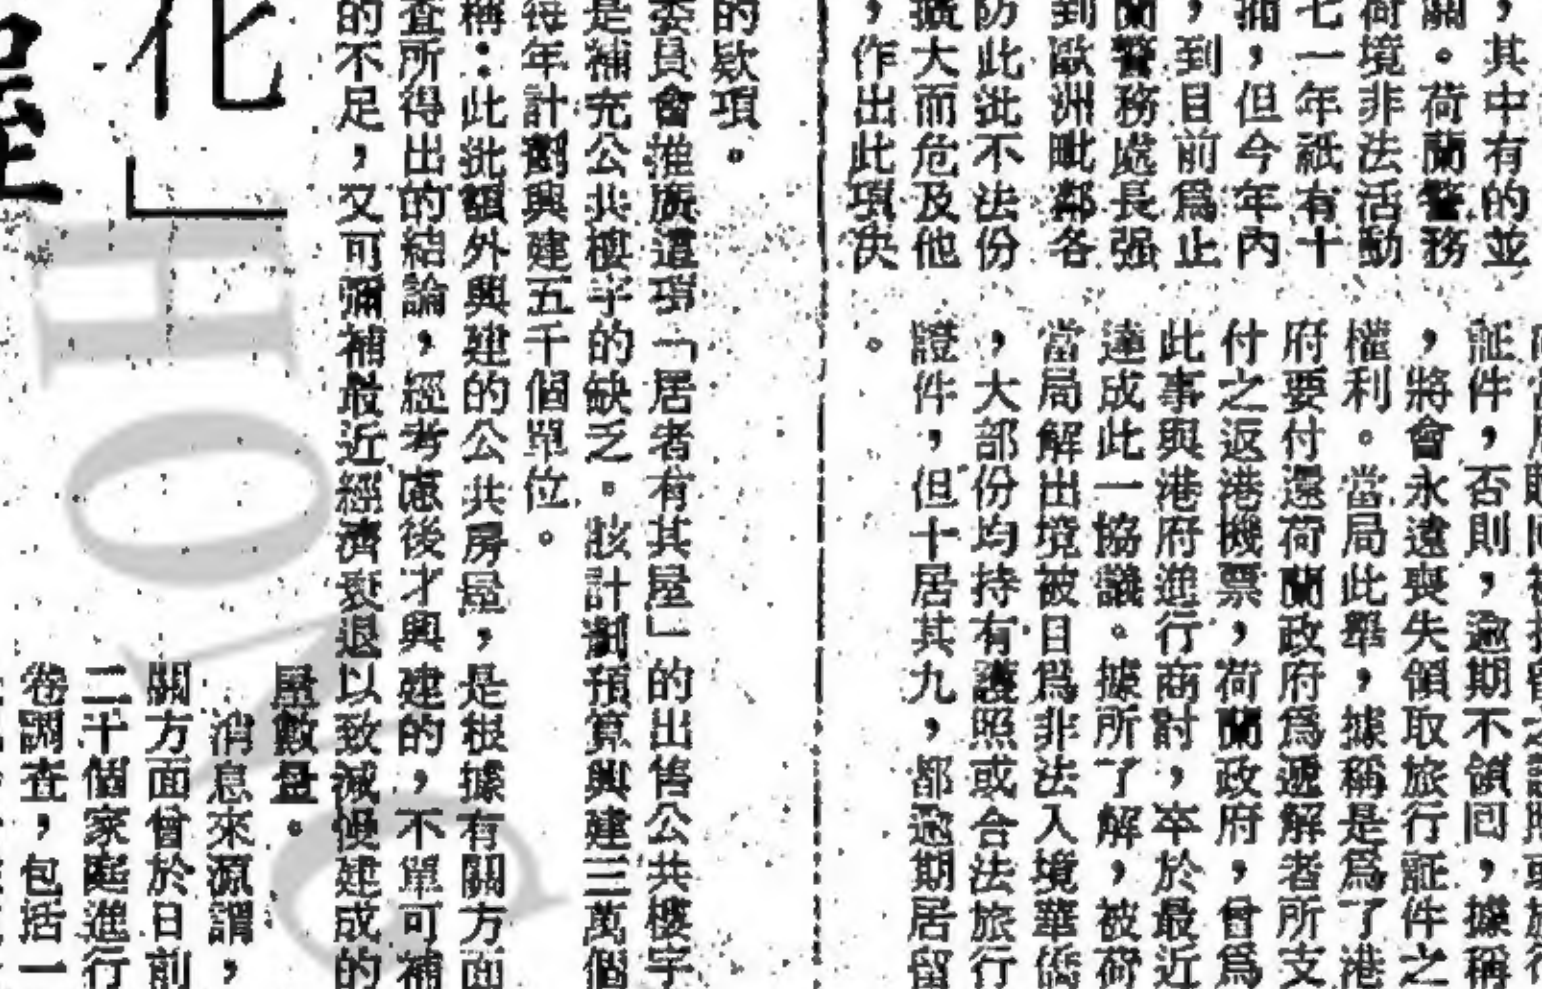 ，其中有的並
關。荷蘭警務
荷境非法活動
七一年祇有十
捕，但今年內
，到目前爲止
蘭警務處長强
到歐洲毗鄰各
防此批不法份
擴大而危及他
，作出此項決
証件，否則，逾期不領回，據稱
，將會永遠喪失領取旅行証件之
權利。當局此舉，據稱是爲了港
府要付還荷蘭政府爲遞解者所支
付之返港機票，荷蘭政府，曾爲
此事與港府進行商討，卒於最近
達成此一協議。據所了解，被荷
當局解出境被目爲非法入境華僑
，大部份均持有護照或合法旅行
證件，但十居其九，都逾期居留
。
的欵項。
委員會推廣這項「居者有其屋」的出售公共樓宇
是補充公共樓宇的缺乏。該計劃預算興建三萬個
年計劃興建五千個單位。
稱：此批額外興建的公共房屋，是根據有關方面
查所得出的結論，經考慮後才興建的，不單可補
的不足，又可彌補最近經濟衰退以致減慢建成的
屋數量。
消息來源謂，
關方面曾於日前
二千個家庭進行
卷調查，包括一
化」
HONG